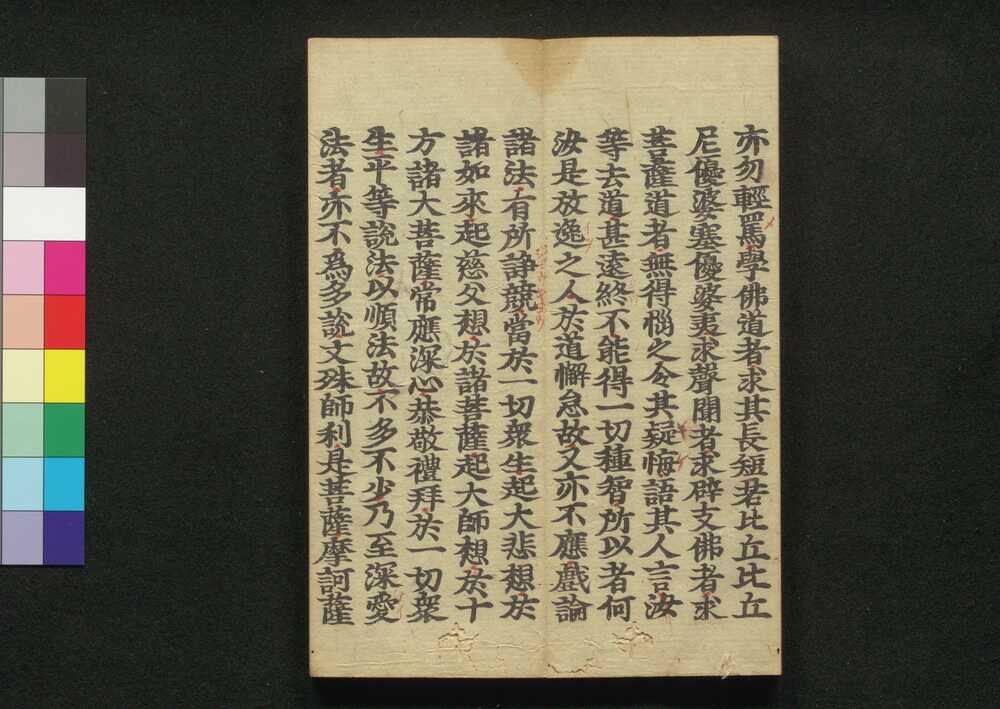 亦勿輕罵學佛道者求其長短若比丘比丘
尼優婆塞優婆夷求聲聞者求辟支佛者求
菩薩道者無得惱之令其疑悔語其人言汝
等去道甚遠終不能得一切種智所以者何
汝是放逸之人於道懈怠故又亦不應戲論
諸法有所諍競當於一切衆生起大悲想於
諸如來起慈父想於諸菩薩起大師想於十
方諸大菩薩常應深心恭敬禮拜於一切衆
生平等說法以順法故不多不少乃至深愛
法者亦不爲多說文殊師利是菩薩摩訶薩